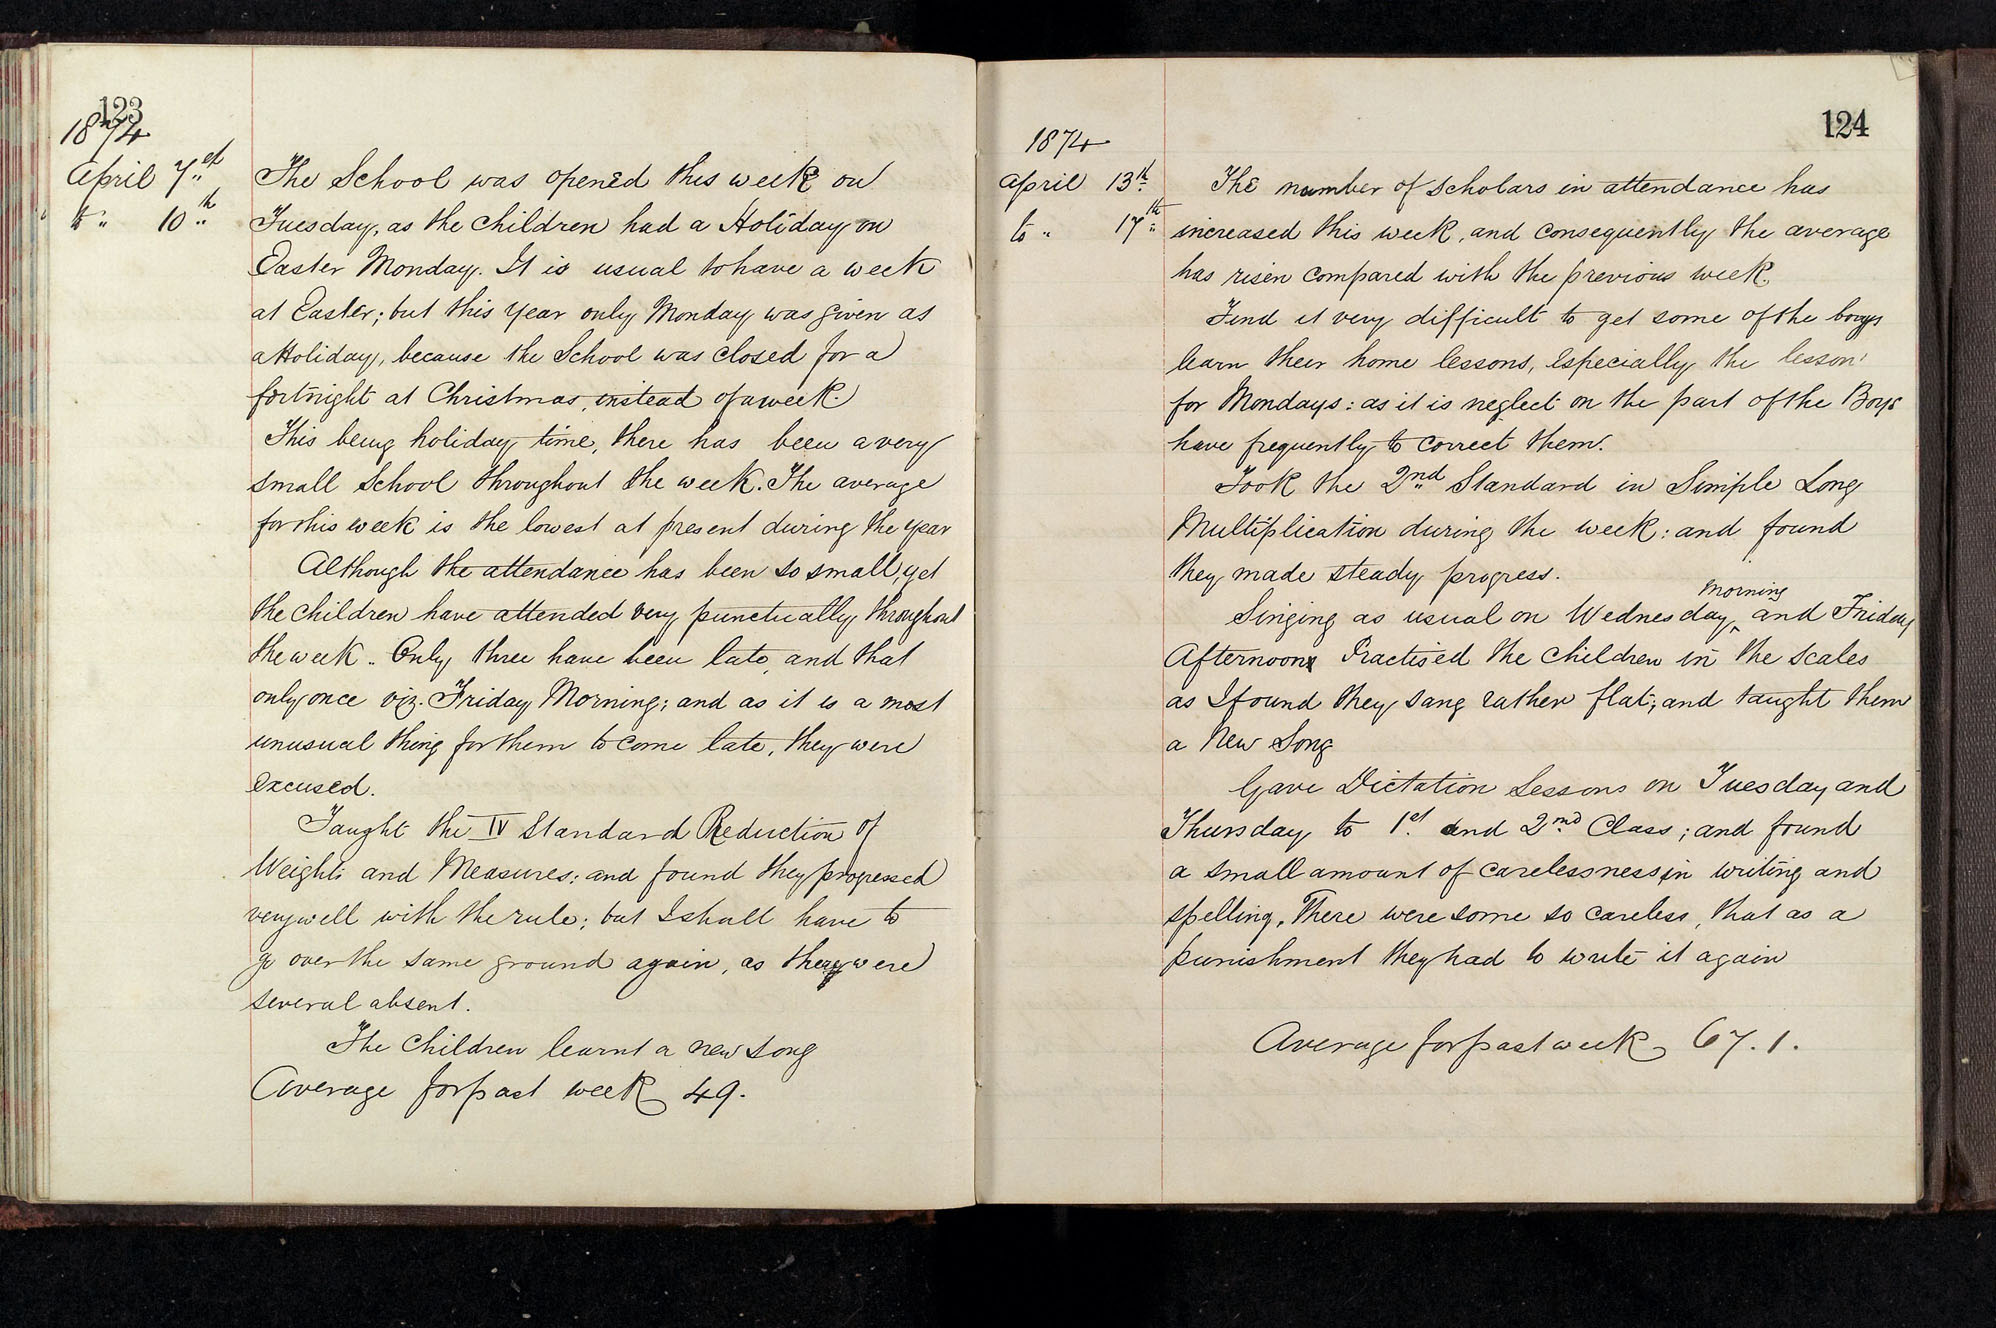 123
1874
April 7st The School was opened this week on
to " 10th Tuesday, as the children had a Holiday on
Easter Monday. It is usual to have a week
at Easter; but this year only Monday was given as
a Holiday, because the School was closed for a
fortnight at Christmas, instead of a week.
This being holiday time, there has been a very
small School throughout the week. The average
for this week is the lowest at present during the year
Although the attendance has been so small, yet
the children have attended very punctually throughout
the week. Only three have been late, and that
only once viz. Friday Morning; and as it is a most
unusual thing for them to come late, they were
excused.
Taught the IV Standard Reduction of
Weights and Measures; and found they progressed
very well with the rule; but I shall have to
go over the same ground again, as there were
several absent.
The children learnt a new song
Average for past week 49.
124
1874
April 13th The number of scholars in attendance has
to " 17th increased this week, and consequently the average
has risen compared with the previous week.
Find it very difficult to get some of the boys
learn their home lessons, especially the lesson
for Mondays: as it is neglect on the part of the Boys
have frequently to correct them.
Took the 2nd Standard in Simple Long
Multiplication during the week: and found
they made steady progress.
Singing as usual on Wednesday morning and Friday
Afternoon Practised the children in the scales
as I found they sang rather flat; and taught them
a New Song
Gave Dictation Lessons on Tuesday and
Thursday to 1st and 2nd Class; and found
a small amount of carelessness in writing and
spelling. There were some so careless, that as a
punishment they had to write it again
Average for past week 67.1.